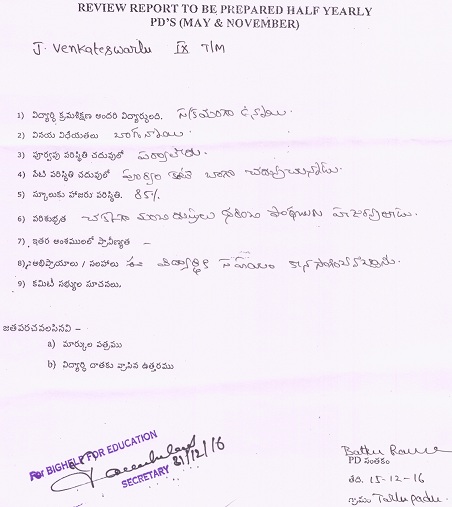 REVIEW REPORT TO BE PREPARED HALF YEARLY
PD'S (MAY & NOVEMBER)
J. Venkateswarlu IX T/M
1) విద్యార్థి క్రమశిక్షణ అందరి విద్యార్థులది.
2) వినయ విధేయతలు బాగున్నాయి.
3) పూర్వపు పరిస్థితి చదువులో పర్వాలేదు.
4) నేటి పరిస్థితి చదువులో బాగా చదువుచున్నాడు.
5) స్కూలుకు హాజరు పరిస్థితి. 85%.
6) పరిశుభ్రత చక్కగా
7) ఇతర అంశములలో ప్రావీణ్యత –
8) అభిప్రాయాలు / సలహాలు ఈ విద్యార్థికి సహాయం
9) కమిటీ సభ్యుల సూచనలు.
జతపరచవలసినవి –
a) మార్కుల పత్రము
b) విద్యార్థి దాతకు వ్రాసిన ఉత్తరము
For BIGHELP FOR EDUCATION
31/12/16
SECRETARY
PD సంతకం
తేది. 15-12-16
గ్రామం Tallupadu.